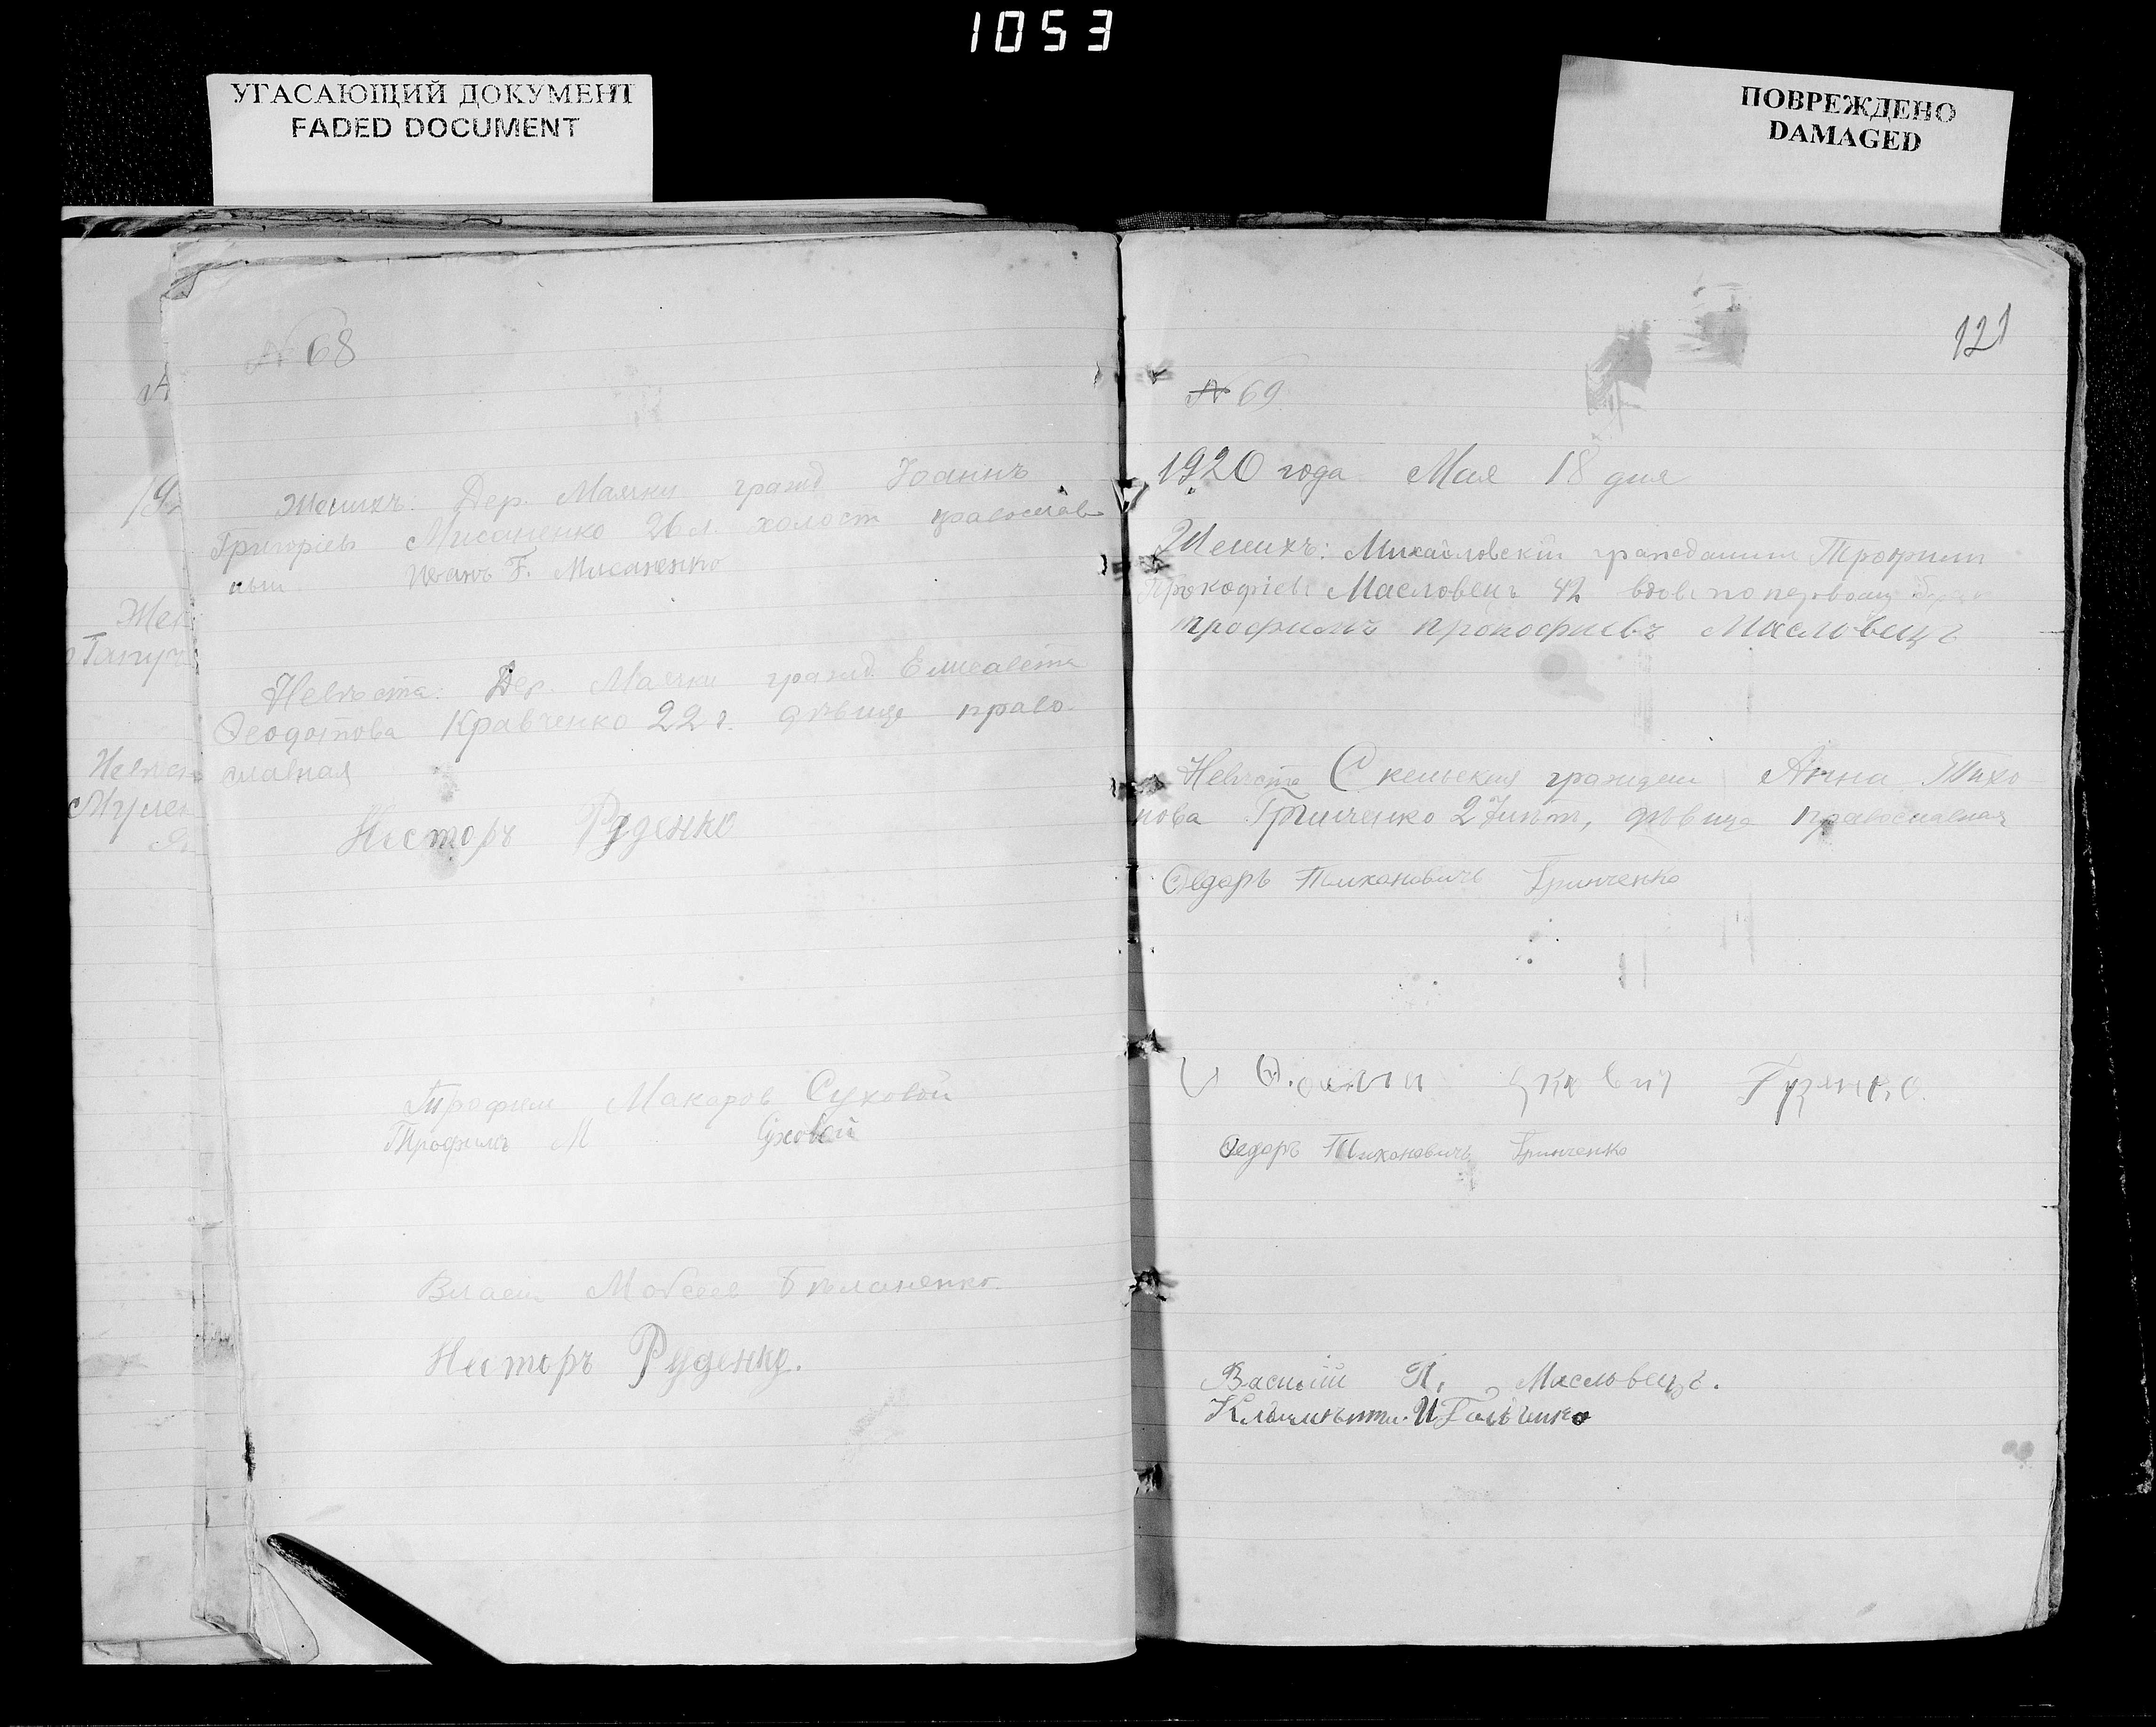 1053
УГАСАЮЩИЙ ДОКУМЕНТ
FADED DOCUMENT
ПОВРЕЖДЕНО
DAMAGED
№ 68
Женихъ. Дер. Маячки гражд Іоаннъ
Григоріевъ Мисаненко 26 л. холост православ
ный Иванъ Г. Мисаненко
Невѣста: Дер. Маячки гражд. Елисавета
Феодотова Кравченко 22 л. дѣвица право
славная
Несторъ Руденко
Трофим Макаров Суховой
Трофимъ М Суховой
Власій Мовсеев Бѣланенко
Несторъ Руденко.
121
№ 69
1920 года Мая 18 дня
Женихъ: Михайловскій гражданин Трофим
Прокофіевъ Масловецъ 42 вдов по первому браку
трофимъ прокофиевъ Масловецъ
Невѣста Скельская граждан Анна Тихо
нова Гринченко 27 лѣт, дѣвица православная
Федоръ Тихоновичъ Гринченко
Федоръ Тихоновичъ Гринченко
Василий П. Масловецъ.
Жен
Невѣс